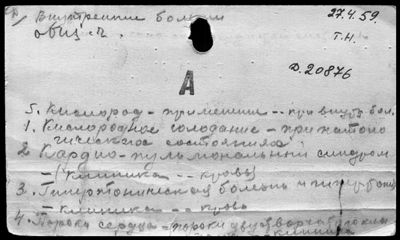 Внутренние болезни
общ. ч.
27.4.59.
Т.Н.
D.20876
А
5. Кислород - применение -- при внутр. бол.
1. Кислородное голодание - при патоло
гических состояниях
2. Кардио-пульмональный синдром
- (клиника -- кровь)
3. Гипертоническая болезнь и
- клиника -- кровь
4. Пороки сердца - пороки двустворчатого клап
клиника